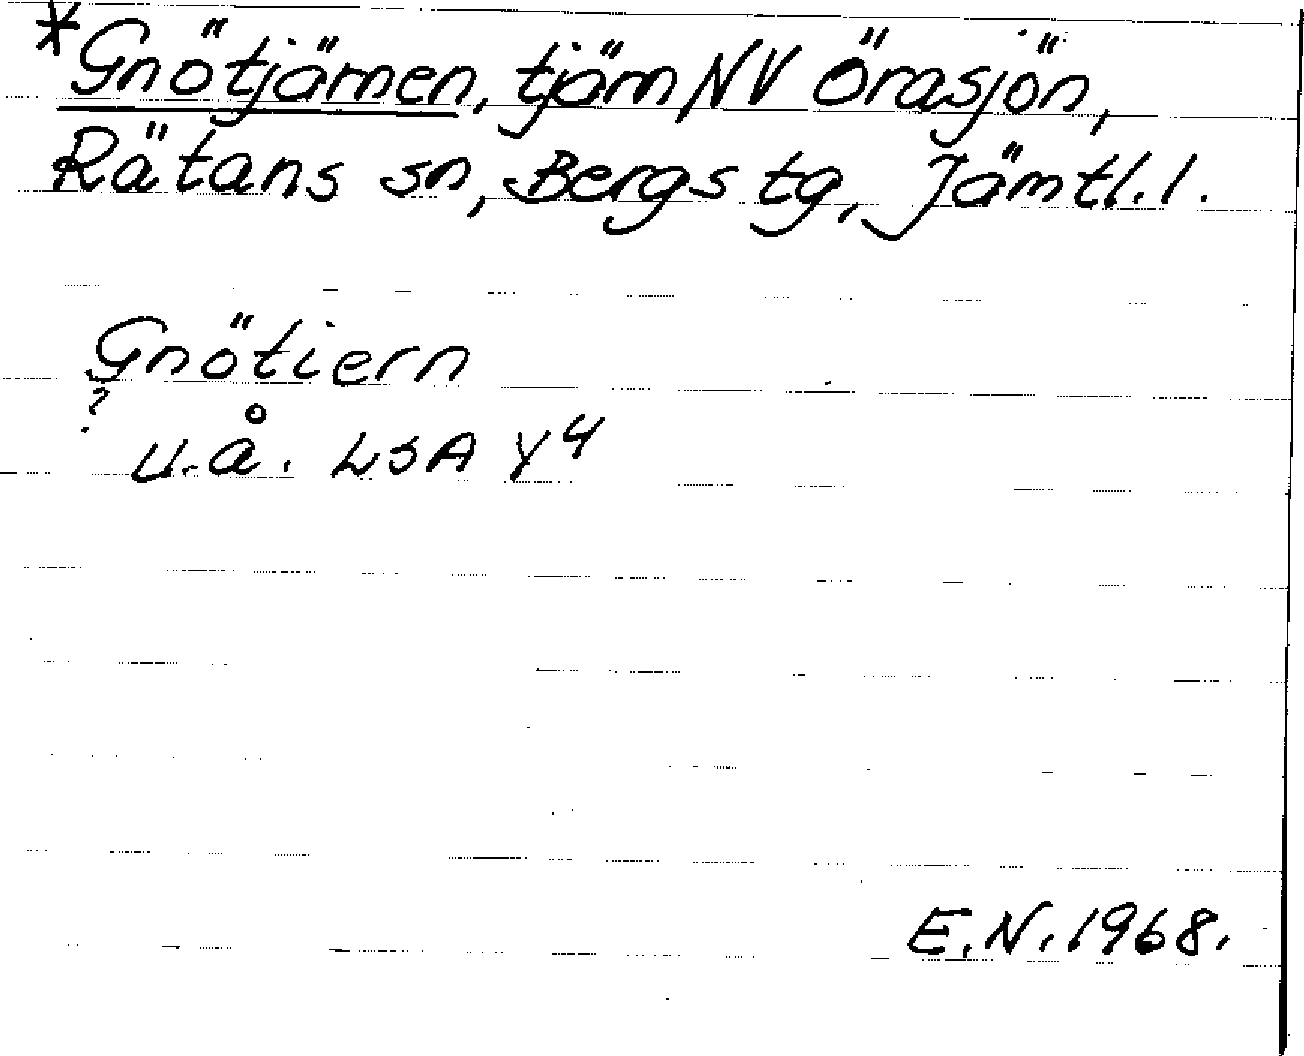 *Gnötjärnen, tjärn NV Örasjön,
Rätans sn, Bergs tg, Jämtl. l.
Gnötiern
?
u. å. LSA Y4
E.N. 1968.